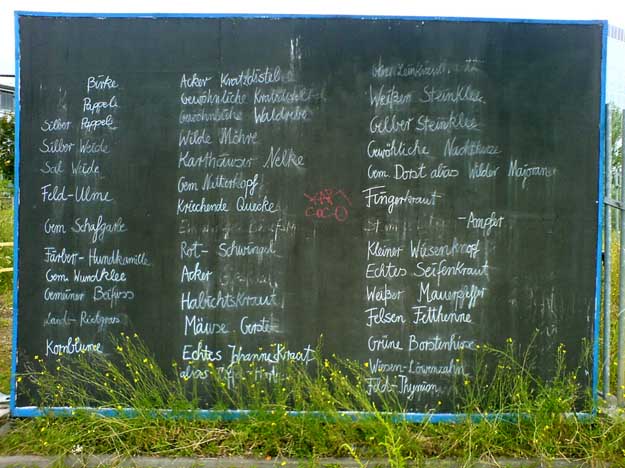 Birke
Pappel
Silber Pappel
Silber Weide
Sal Weide
Feld-Ulme
Gem Schafgarbe
Färber-Hundkamille
Gem. Wundklee
Gemeiner Beifuss
Land-Rietgras
Kornblume
Acker Kratzdistel
Gewöhnliche Kratzdistel
Gewöhnliche Waldrebe
Wilde Möhre
Karthäuser Nelke
Gem Natterkopf
Kriechende Quecke
Rot-Schwingel
Acker
Habichtskraut
Mäuse Gerste
Echtes Johanneskraut
alias
Weißer Steinklee
Gelber Steinklee
Gewöhliche Nachtkerze
Gem. Dorst alias Wilder Majoran
Fingerkraut
-Ampfer
Kleiner Wiesenknopf
Echtes Seifenkraut
Weißer Mauerpfeffer
Felsen Fetthenne
Grüne Borstenhirse
Wiesen-Löwenzahn
Feld-Thymian